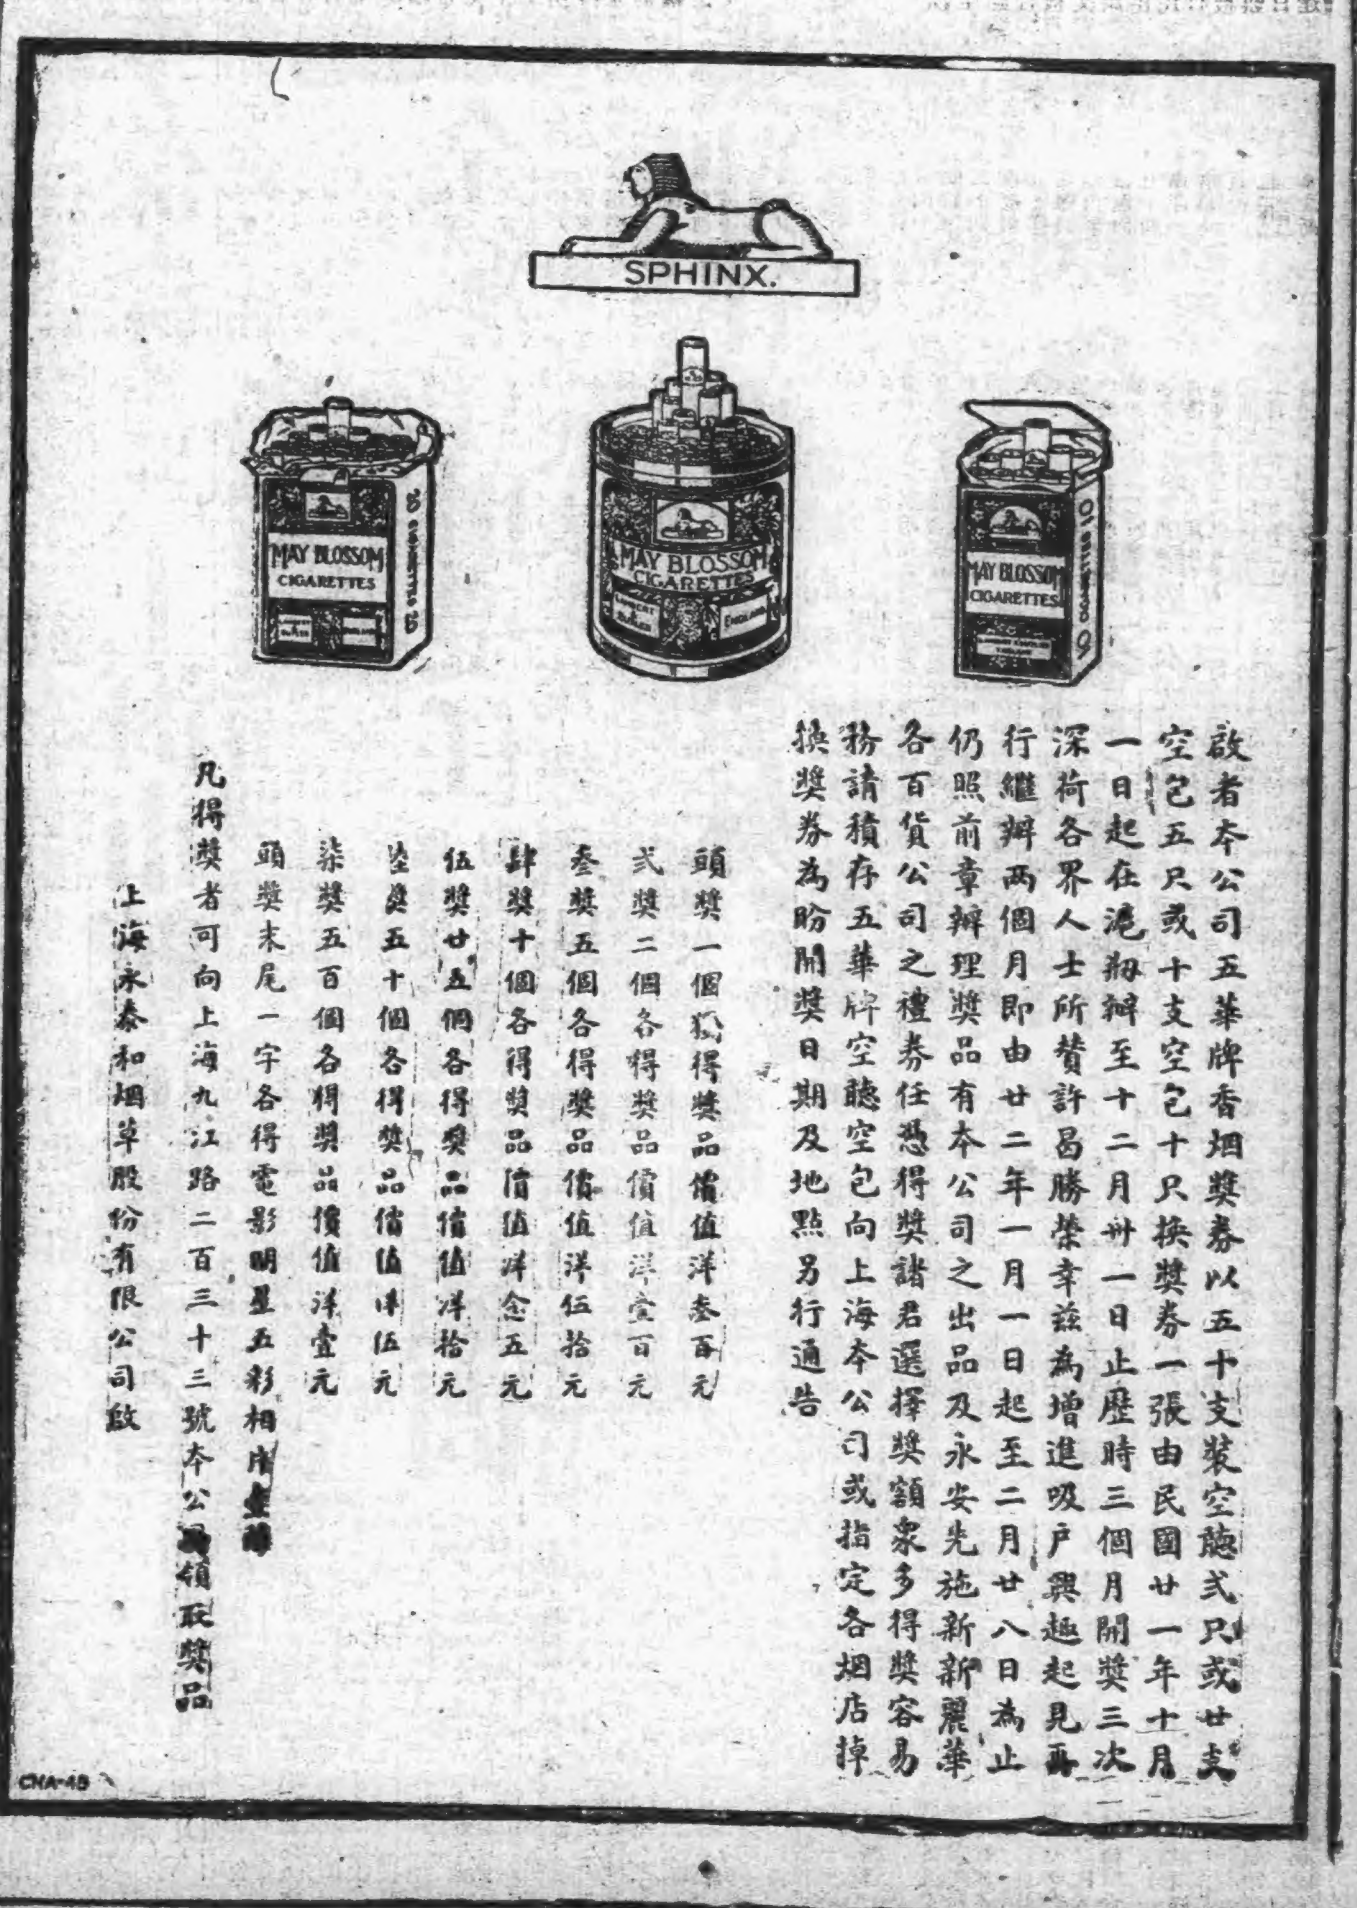 SPHINX.
MAY BLOSSOM
CIGARETTES
20 CIGARETTES 20
LAMBERT
&
BUTLER
ENGLAND
MAY BLOSSOM
CIGARETTES
LAMBERT
&
BUTLER
ENGLAND
MAY BLOSSOM
CIGARETTES
10 CIGARETTES 10
啟者本公司五華牌香烟獎券以五十支裝空聽弍只或廿支
空包五只或十支空包十只換獎券一張由民國廿一年十月
一日起在滬刱辦至十二月卅一日止歷時三個月開獎三次
深荷各界人士所贊許曷勝榮幸茲為增進吸户興趣起見再
行繼辦两個月即由廿二年一月一日起至二月廿八日為止
仍照前章辦理獎品有本公司之出品及永安先施新新麗華
各百貨公司之禮券任憑得獎諸君選擇獎額衆多得獎容易
務請積存五華牌空聽空包向上海本公司或指定各烟店掉
換獎券為盼開獎日期及地點另行通告
頭獎一個獨得獎品價值洋叁百元
弍獎二個各得獎品價值洋壹百元
叁獎五個各得獎品價值洋伍拾元
肆獎十個各得獎品價值洋念五元
伍獎廿五個各得獎品價值洋拾元
陸獎五十個各得獎品價值洋伍元
柒獎五百個各得獎品價值洋壹元
頭獎末尾一字各得電影明星五彩相片
凡得獎者可向上海九江路二百三十三號本公司領取獎品
上海永泰和烟草股份有限公司啟
CHA-48